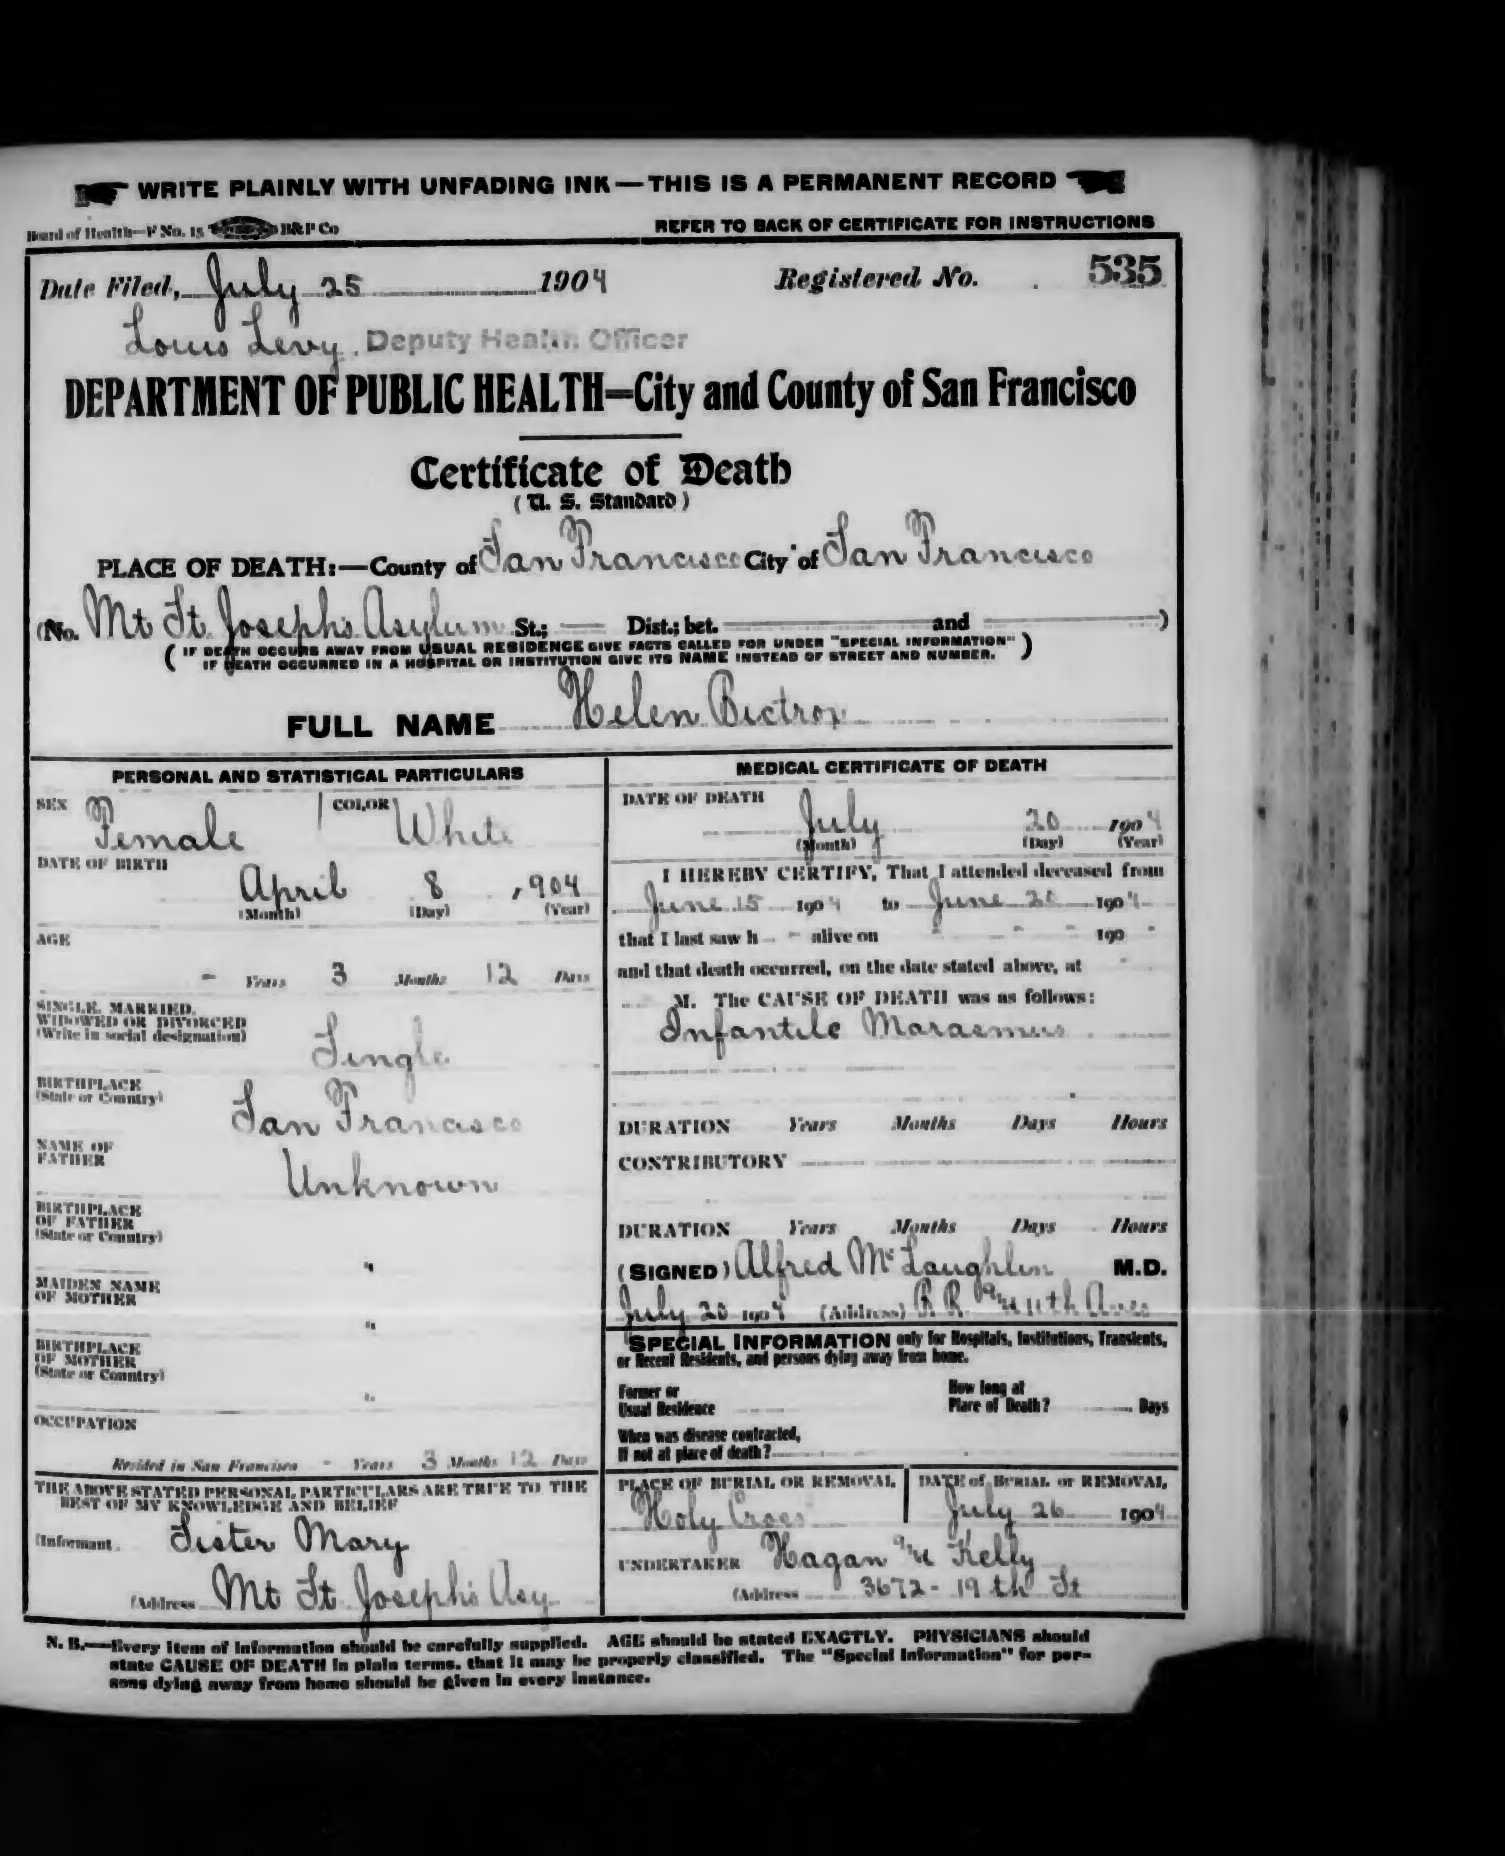 WRITE PLAINLY WITH UNFADING INK—THIS IS A PERMANENT RECORD
Board of Health—F No. 15 B&P Co
REFER TO BACK OF CERTIFICATE FOR INSTRUCTIONS
Date Filed, July 25 1904 Registered No. 535
Louis Levy, Deputy Health Officer
DEPARTMENT OF PUBLIC HEALTH—City and County of San Francisco
Certificate of Death
(U. S. Standard)
PLACE OF DEATH:—County of San Francisco City of San Francisco
(No. Mt St. Joseph's Asylum St.; — Dist.; bet. — and — )
( IF DEATH OCCURS AWAY FROM USUAL RESIDENCE GIVE FACTS CALLED FOR UNDER "SPECIAL INFORMATION" )
IF DEATH OCCURRED IN A HOSPITAL OR INSTITUTION GIVE ITS NAME INSTEAD OF STREET AND NUMBER.
FULL NAME Helen Bictrop
PERSONAL AND STATISTICAL PARTICULARS
SEX Female COLOR White
DATE OF BIRTH
April 8, 1904
(Month) (Day) (Year)
AGE
- Years 3 Months 12 Days
SINGLE, MARRIED,
WIDOWED OR DIVORCED
(Write in social designation)
Single
BIRTHPLACE
(State or Country)
San Francisco
NAME OF
FATHER
Unknown
BIRTHPLACE
OF FATHER
(State or Country)
"
MAIDEN NAME
OF MOTHER
"
BIRTHPLACE
OF MOTHER
(State or Country)
"
OCCUPATION
Resided in San Francisco - Years 3 Months 12 Days
THE ABOVE STATED PERSONAL PARTICULARS ARE TRUE TO THE
BEST OF MY KNOWLEDGE AND BELIEF
(Informant Sister Mary
(Address Mt St Joseph's Asy
MEDICAL CERTIFICATE OF DEATH
DATE OF DEATH
July 20 1904
(Month) (Day) (Year)
I HEREBY CERTIFY, That I attended deceased from
June 15 1904 to June 20 1904
that I last saw h - " alive on " " 190 "
and that death occurred, on the date stated above, at "
M. The CAUSE OF DEATH was as follows:
Infantile Marasmus
DURATION Years Months Days Hours
CONTRIBUTORY
DURATION Years Months Days Hours
(SIGNED) Alfred McLaughlin M.D.
July 20 1904 (Address) R.R. and 11th Aves
SPECIAL INFORMATION only for Hospitals, Institutions, Transients,
or Recent Residents, and persons dying away from home.
Former or
Usual Residence
How long at
Place of Death? Days
When was disease contracted,
If not at place of death?
PLACE OF BURIAL OR REMOVAL
Holy Cross
DATE of BURIAL or REMOVAL
July 26 1904
UNDERTAKER Hagan and Kelly
(Address 3672 - 19th St
N. B.—Every item of information should be carefully supplied. AGE should be stated EXACTLY. PHYSICIANS should
state CAUSE OF DEATH in plain terms, that it may be properly classified. The "Special Information" for per-
sons dying away from home should be given in every instance.